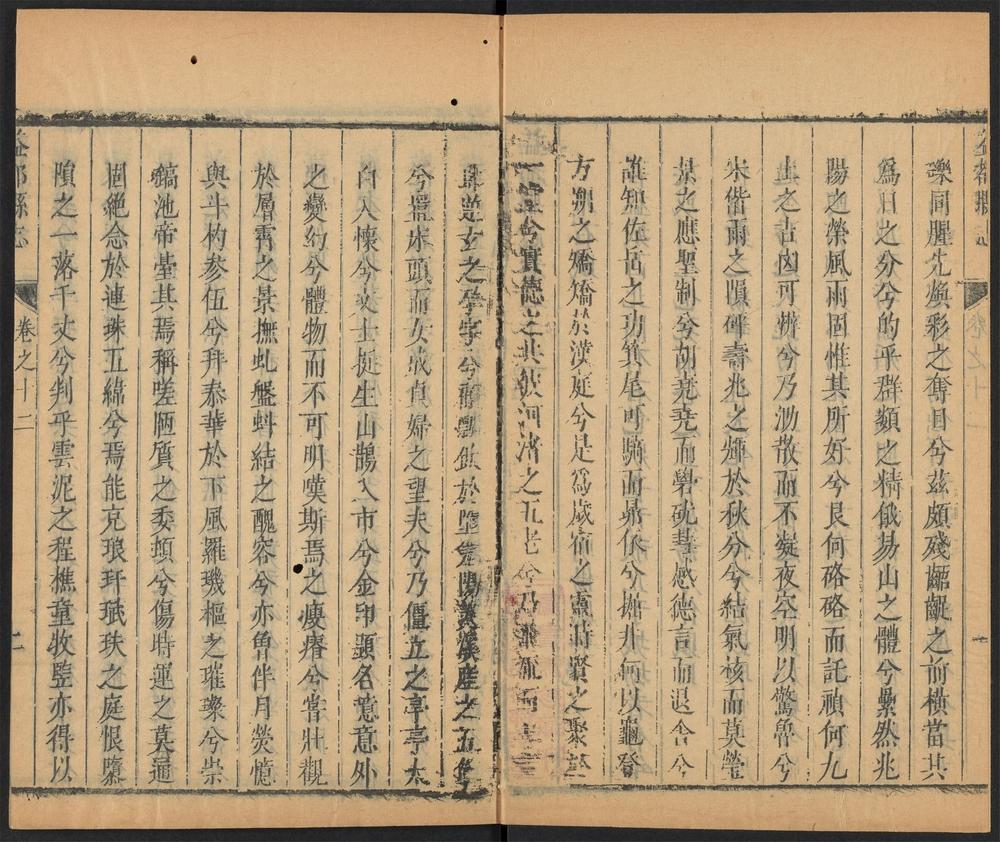 益都縣志
礫同腥先煥彩之奪目兮茲頗殘齟齬之前橫當其
爲日之分兮的乎群類之精俄易山之體兮纍然兆
陽之榮風雨固惟其所好兮艮何硌硌而託禎何九
土之吉凶可辨兮乃渤散而不凝夜空明以驚魯兮
宋偕雨之隕碑壽兆之輝於秋分兮結氣核而莫瑩
景之應聖制兮胡堯堯而礐硊彗感德言而退舍兮
誰知佐苗之功箕尾可騎而鼎伏兮掘井何以龜登
方朔之矯矯於漢庭兮是爲歲宿之賢之聚
兮實德之共河渚之五老兮乃
之孕字兮於墮之五
兮牀頭而女成貞婦之望夫兮乃僵立之亭亭太
白入懷兮文士挺生山鵲入市兮金印題名意意外
之變幻兮體物而不可明嘆斯焉之瘦瘠兮嘗壯觀
於層霄之景撫虬盤蚪結之醜容兮亦曾伴月熒憶
與斗杓參伍兮拜泰華於下風羅璣樞之璀璨兮崇
鎬池帝臺其焉稱嗟陋質之委頓兮傷時運之莫通
固絕念於連珠五緯兮焉能克琅玕珷玞之庭恨墮
隕之一落千丈兮判乎雲泥之程樵童牧豎亦得以
益都縣志 卷之十二 二